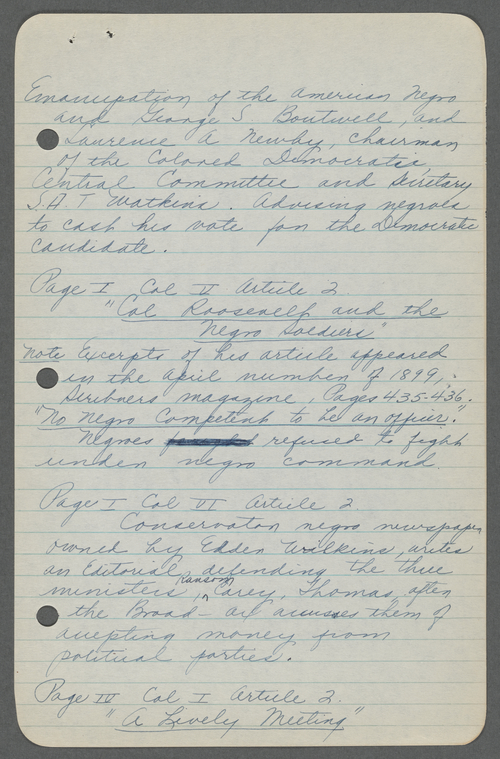 Emancipation of the american Negro
and George S. Boutwell, and
Laurence A Newby, Chairman
of the Colored Democratic
Central Committee and Secretary
S.A.T Watkins. Advising negroes
to cast his vote for the Democratic
candidate.
Page I Col V Article 2
"Col Roosevelt and the
Negro Soldiers"
Note Excerpts of his article appeared
in the April number of 1899,
Scribners magazine, Pages 435-436.
"No Negro Competent to be an officer."
Negroes refused to fight
under negro command.
Page I Col VI Article 2.
Conservator negro newspaper
owned by Edden Wilkins, writes
an Editorial, defending the three
ministers, Ransom, Carey, Thomas, after
the Broad-ax accuses them of
accepting money from
political parties.
Page IV Col I Article 2.
"A Lively Meeting"